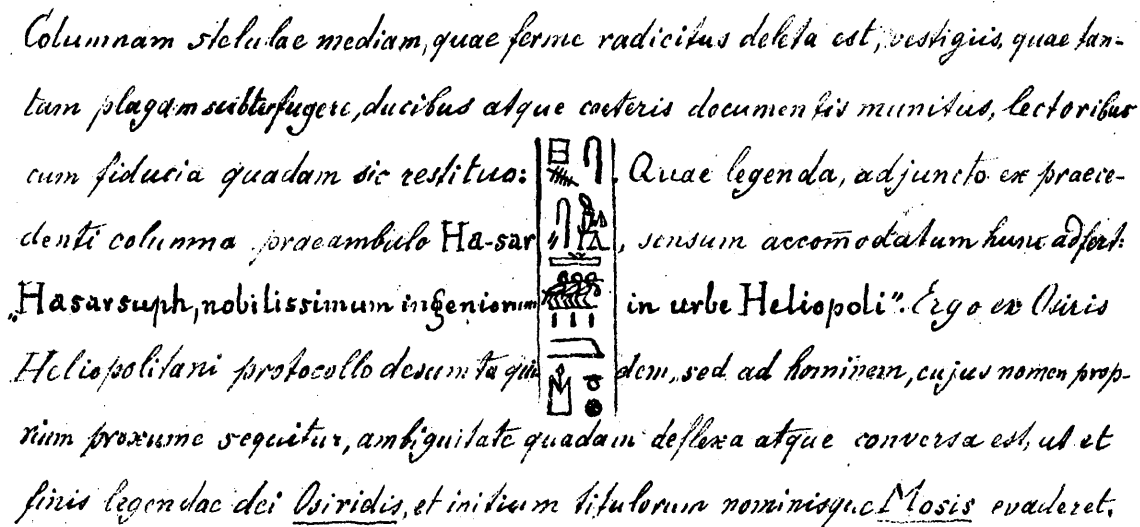 Columnam stelulae mediam, quae ferme radicitus deleta est, vestigiis, quae tan-
tam plagam subterfugere, ducibus atque caeteris documentis munitus, lectoribus
cum fiducia quadam sic restituo: . Quae legenda, adjuncto ex praece-
denti columna praeambulo Ha-sar , sensum accom̄odatum hunc adfert:
„Hasarsuph, nobilissimum ingeniorum in urbe Heliopoli". Ergo ex Osiris
Heliopolitani protocollo desumta qui dem, sed ad hominem, cujus nomen prop-
rium proxume sequitur, ambiguitate quadam deflexa atque conversa est, ut et
finis legendae dei Osiridis, et initium titulorum nominisque Mosis evaderet.